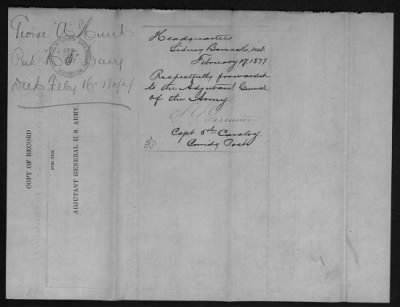 George A
Pvt
Died Feby 16
Headquarters
Sidney Barracks, Neb.
February 17, 1877
Respectfully forwarded
to the Adjutant General
of the Army
Capt 5th Cavalry
Comdg Post
COPY OF RECORD
FOR THE
ADJUTANT GENERAL U.S. ARMY.